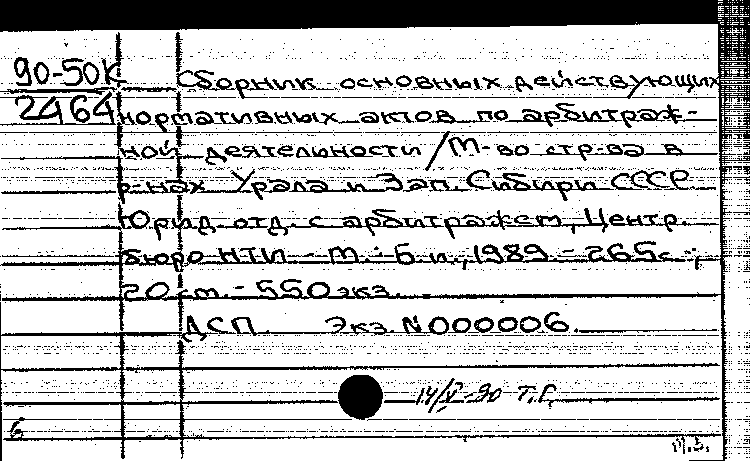 90-50К
2464
Сборник основных действующих
нормативных актов по арбитраж-
ной деятельности / М-во стр-ва в
р-нах Урала и Зап. Сибири СССР.
Юрид. отд. с арбитражем, Центр.
бюро НТИ. - М. : Б.и., 1989. - 265с. ;
20 см. - 550 экз.
ДСП. Экз. N000006.
14/V-90 Т.Г.
6
М.Б.